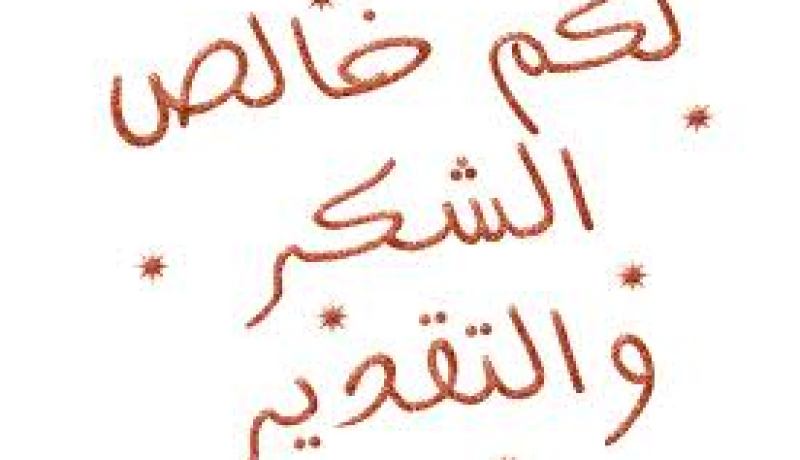 لكم خالص
الشكر
والتقديم